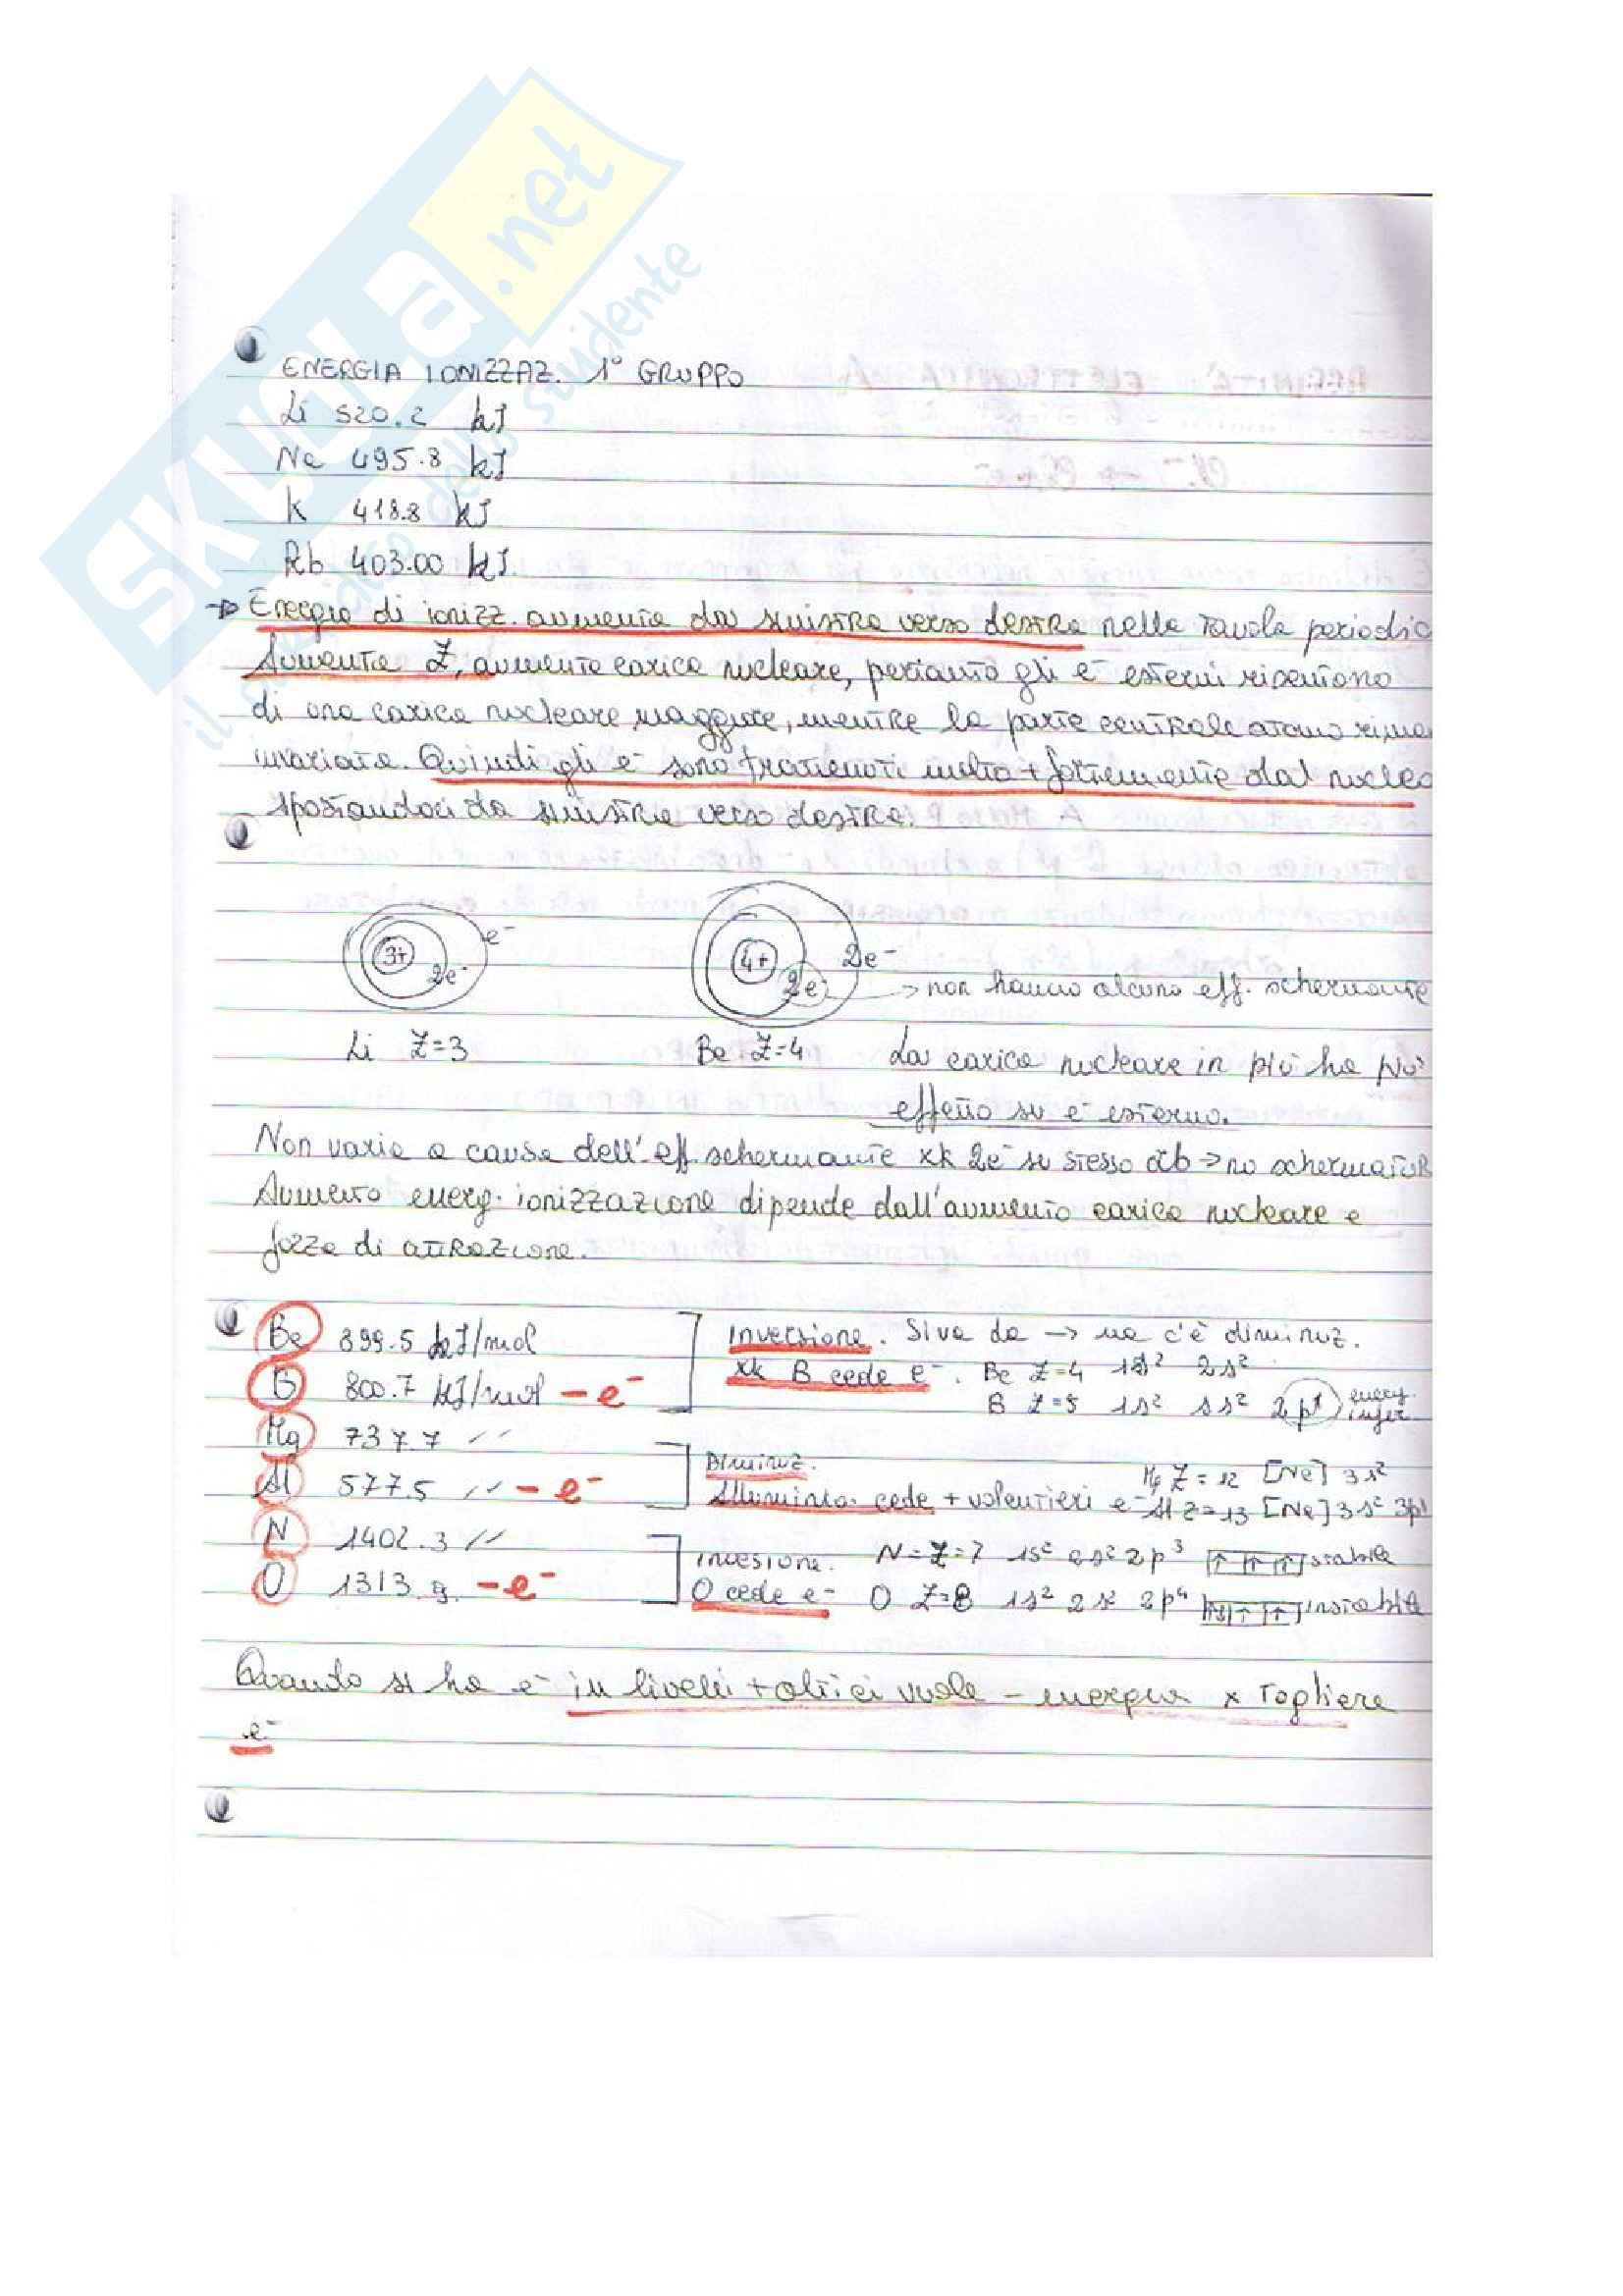 SKUOLA.net
il lato dello studente
ENERGIA IONIZZAZ. 1° GRUPPO
Li 520.2 kJ
Na 495.8 kJ
K 418.8 kJ
Rb 403.00 kJ.
→ Energia di ionizz. aumenta da sinistra verso destra nella tavola periodic
Aumenta Z, aumenta carica nucleare, pertanto gli e⁻ esterni risentono
di una carica nucleare maggiore, mentre la parte centrale atomo rimane
invariata. Quindi gli e⁻ sono trattenuti molto + fortemente dal nucleo
spostandoci da sinistra verso destra.
3+ 2e⁻ e⁻
4+ 2e⁻ 2e⁻ → non hanno alcuno eff. schermante
Li Z=3
Be Z=4
La carica nucleare in più ha più
effetto su e⁻ esterno.
Non varia a causa dell'eff. schermante xk 2e⁻ su stesso orb → no schermatura
Aumento energ. ionizzazione dipende dall'aumento carica nucleare e
forza di attrazione.
Be 899.5 kJ/mol
B 800.7 kJ/mol – e⁻
Inversione. Si va da → ma c'è diminuz.
xk B cede e⁻. Be Z=4 1s² 2s²
B Z=5 1s² 2s² 2p¹ energ. infer.
Mg 737.7 //
Al 577.5 // – e⁻
Diminuz. Mg Z=12 [Ne] 3s²
Alluminio cede + volentieri e⁻ Al Z=13 [Ne] 3s² 3p¹
N 1402.3 //
O 1313.9 – e⁻
Inversione. N=Z=7 1s² 2s² 2p³ ↑ ↑ ↑ stabile
O cede e⁻ O Z=8 1s² 2s² 2p⁴ ↑↓ ↑ ↑ instabile
Quando si ha e⁻ in livelli + alti ci vuole – energia x togliere
e⁻